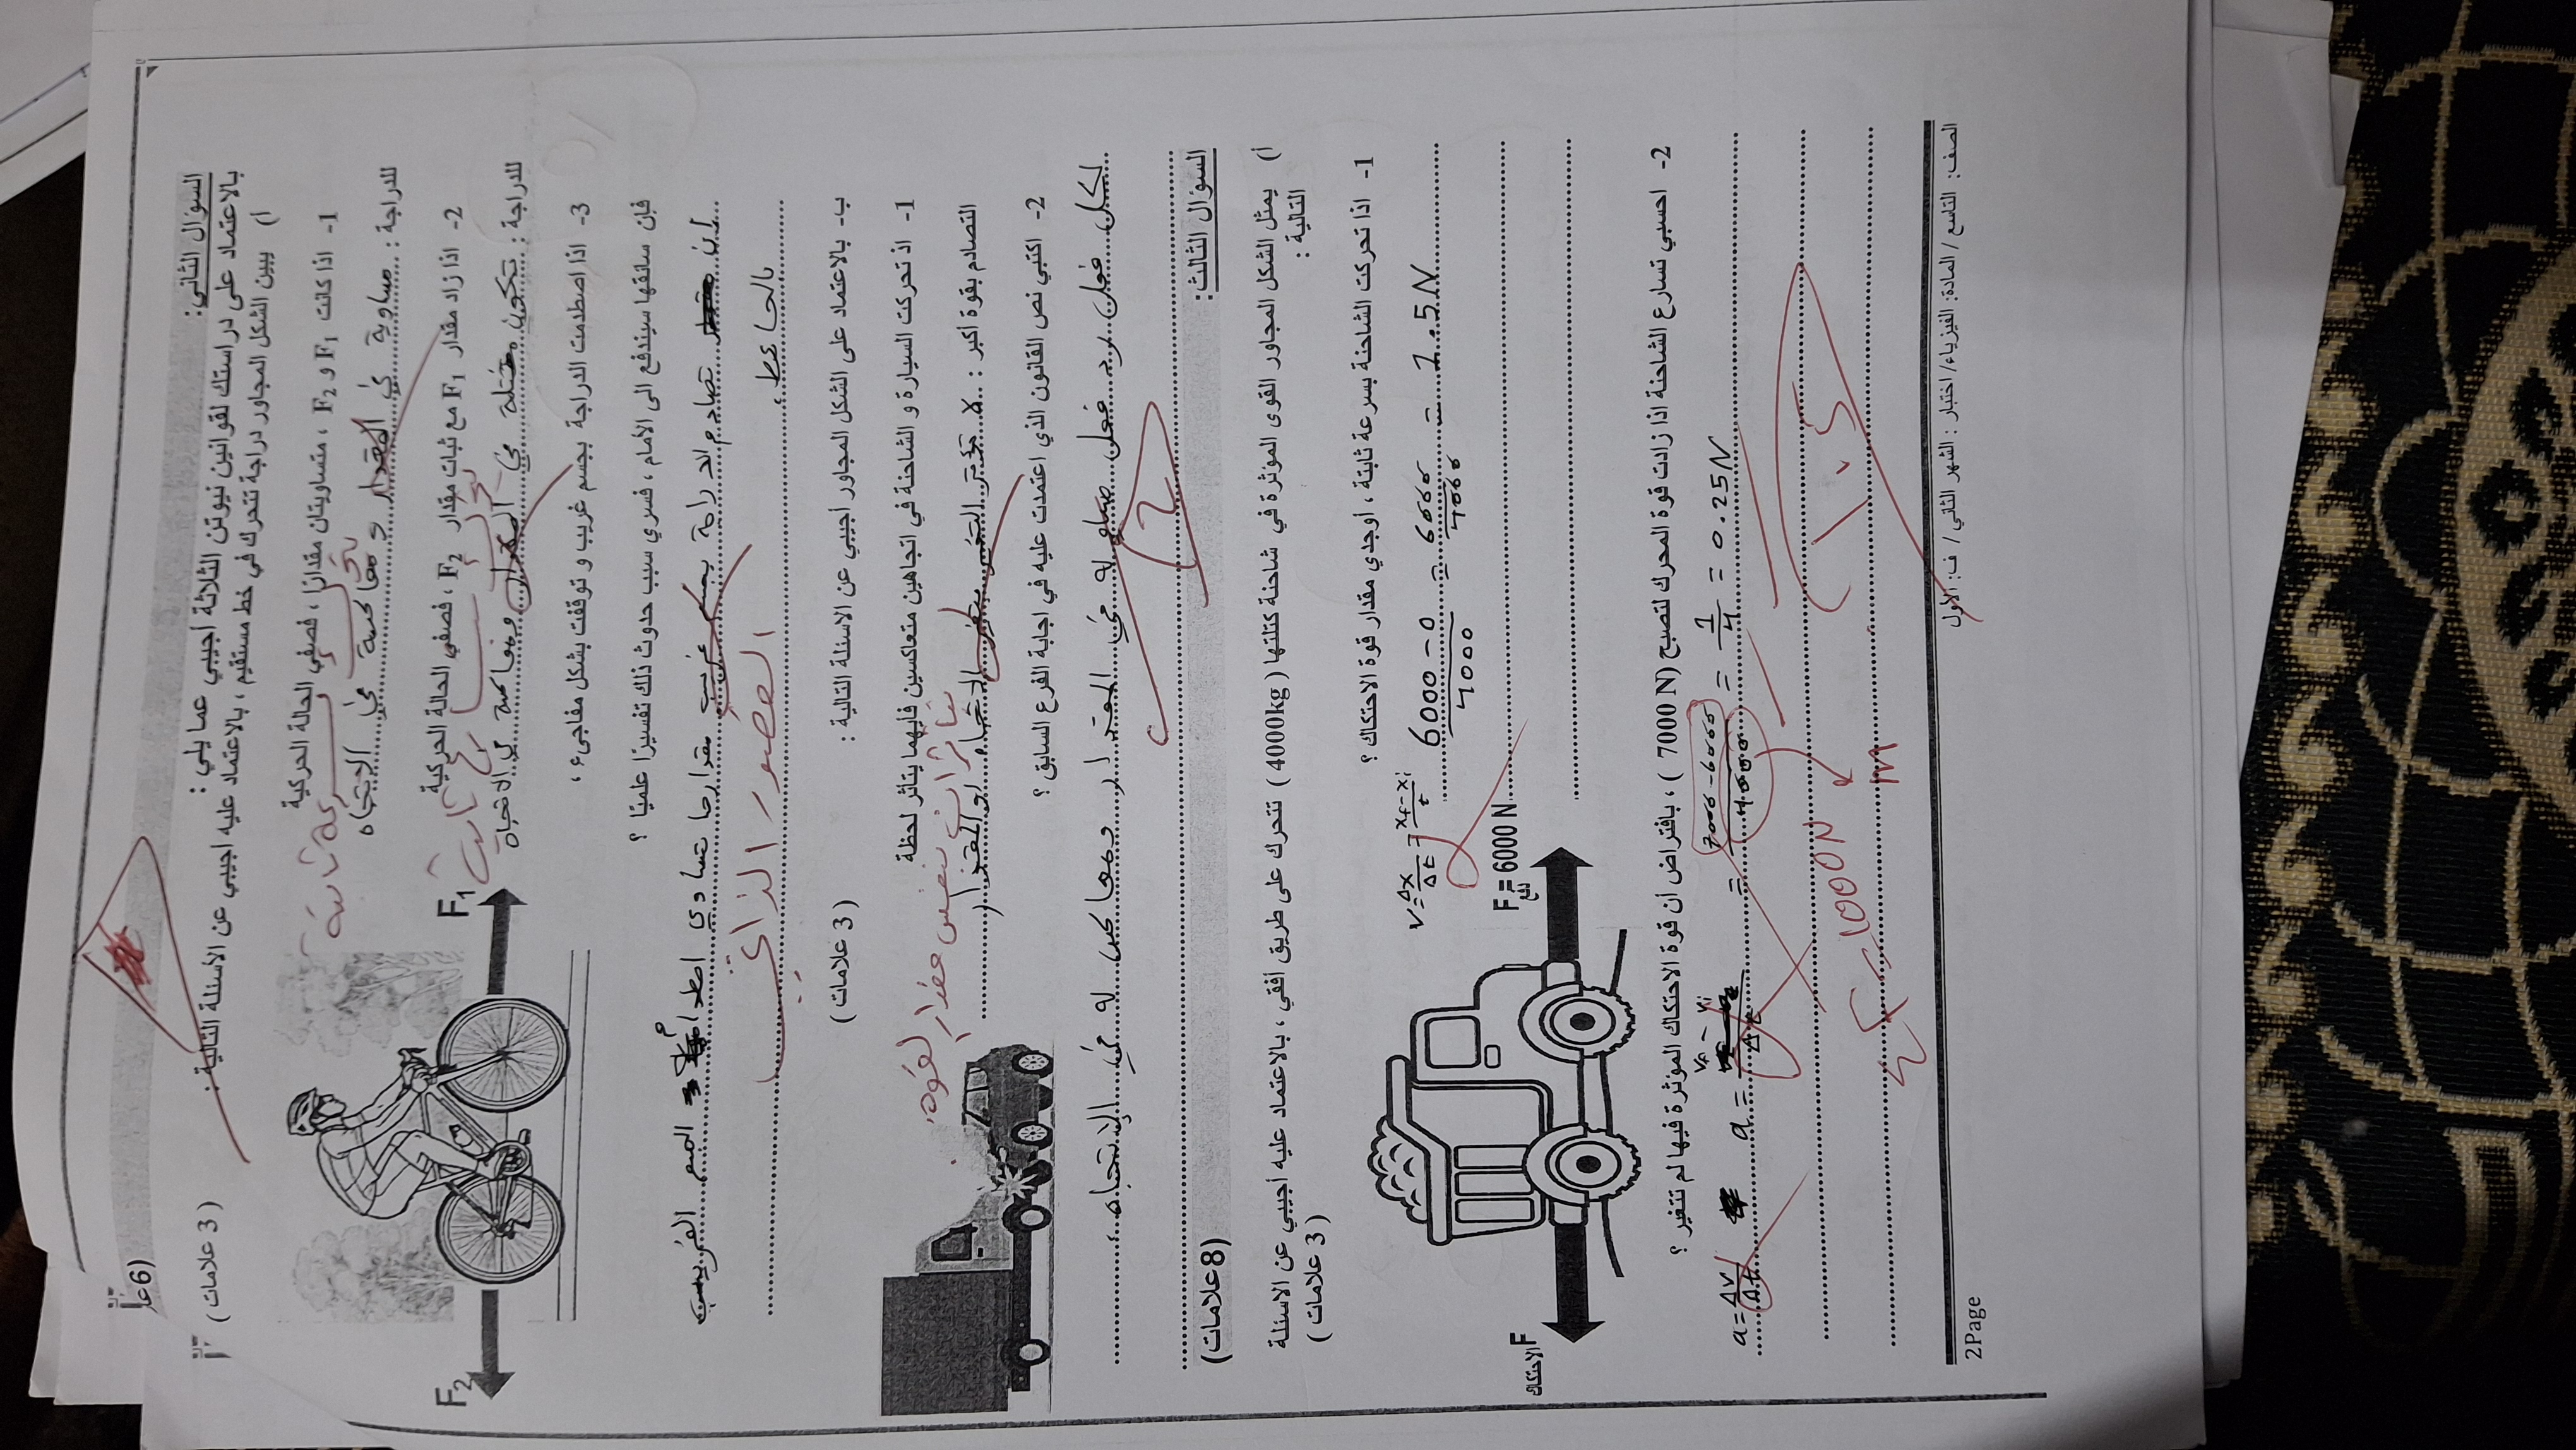 السؤال الثاني:
(6 علا
بالاعتماد على دراستك لقوانين نيوتن الثلاثة أجيبي عما يلي :
أ) يبين الشكل المجاور دراجة تتحرك في خط مستقيم ، بالاعتماد عليه اجيبي عن الأسئلة التالية :
( 3 علامات )
1- اذا كانت F₁ و F₂ ، متساويتان مقدارًا ، فصفي الحالة الحركية
للدراجة : مساوية في المقدار و معاكسة في الاتجاه
حركة ثابتة
2- اذا زاد مقدار F₁ مع ثبات مقدار F₂ ، فصفي الحالة الحركية
للدراجة : تكون مختلة في المقدار ومعاكسة في الاتجاه
F₁
F₂
3- اذا اصطدمت الدراجة بجسم غريب و توقفت بشكل مفاجىء ،
فإن سائقها سيندفع الى الأمام ، فسري سبب حدوث ذلك تفسيرًا علميًا ؟
إن تصادم الدراجة بجسم غريب مقدارها تساوي اصطدام
بالحائط
القصور الذاتي
ب- بالاعتماد على الشكل المجاور اجيبي عن الاسئلة التالية :
( 3 علامات )
1- اذ تحركت السيارة و الشاحنة في اتجاهين متعاكسين فايهما يتاثر لحظة
التصادم بقوة اكبر :
يتأثران بنفس مقدار القوة
2- اكتبي نص القانون الذي اعتمدت عليه في اجابة الفرع السابق ؟
لكل فعل رد فعل مساو له في المقدار ومعاكس له في الاتجاه
2
السؤال الثالث:
(8 علامات)
أ) يمثل الشكل المجاور القوى المؤثرة في شاحنة كتلتها ( 4000kg ) تتحرك على طريق أفقي ، بالاعتماد عليه أجيبي عن الاسئلة
التالية :
( 3 علامات )
1- اذا تحركت الشاحنة بسرعة ثابتة ، أوجدي مقدار قوة الاحتكاك ؟
v = Δx/Δt = xf-xi/t
6000-0/4000 = 6000/4000 = 1.5 N
F دفع = 6000 N
F الاحتكاك
2- احسبي تسارع الشاحنة اذا زادت قوة المحرك لتصبح ( 7000 N ) ، بافتراض ان قوة الاحتكاك المؤثرة فيها لم تتغير ؟
a = Δv/Δt a = vf - vi/Δt = 7000-6000/4000 = 1/4 = 0.25 N
1000 N
ΣF m
1.5
الصف: التاسع / المادة: الفيزياء/ اختبار : الشهر الثاني / ف: الأول
2Page